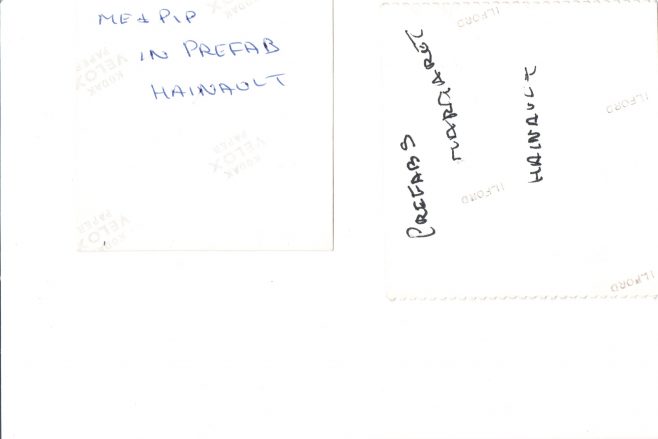 ME & PIP
IN PREFAB
HAINAULT
KODAK
VELOX
PAPER
KODAK
VELOX
PAPER
KODAK
VELOX
PAPER
PREFABS
MARGARET
HAINAULT
ILFORD
ILFORD
ILFORD
ILFORD